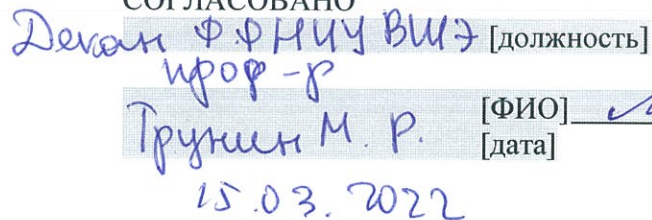 СОГЛАСОВАНО
Декан ФФ НИУ ВШЭ [должность]
проф-р
Трунин М. Р. [ФИО]
[дата]
15.03.2022